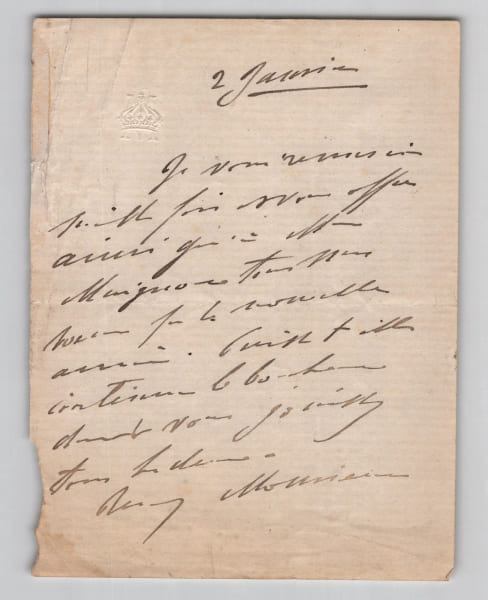 2 Janvier
Je vous remercie
mille fois & vous offre
ainsi qu'à Mme
Maignan tous mes
voeux pour la nouvelle
année. Puisse t'elle
continuer le bonheur
dont vous jouissez
tous les deux.
Monsieur